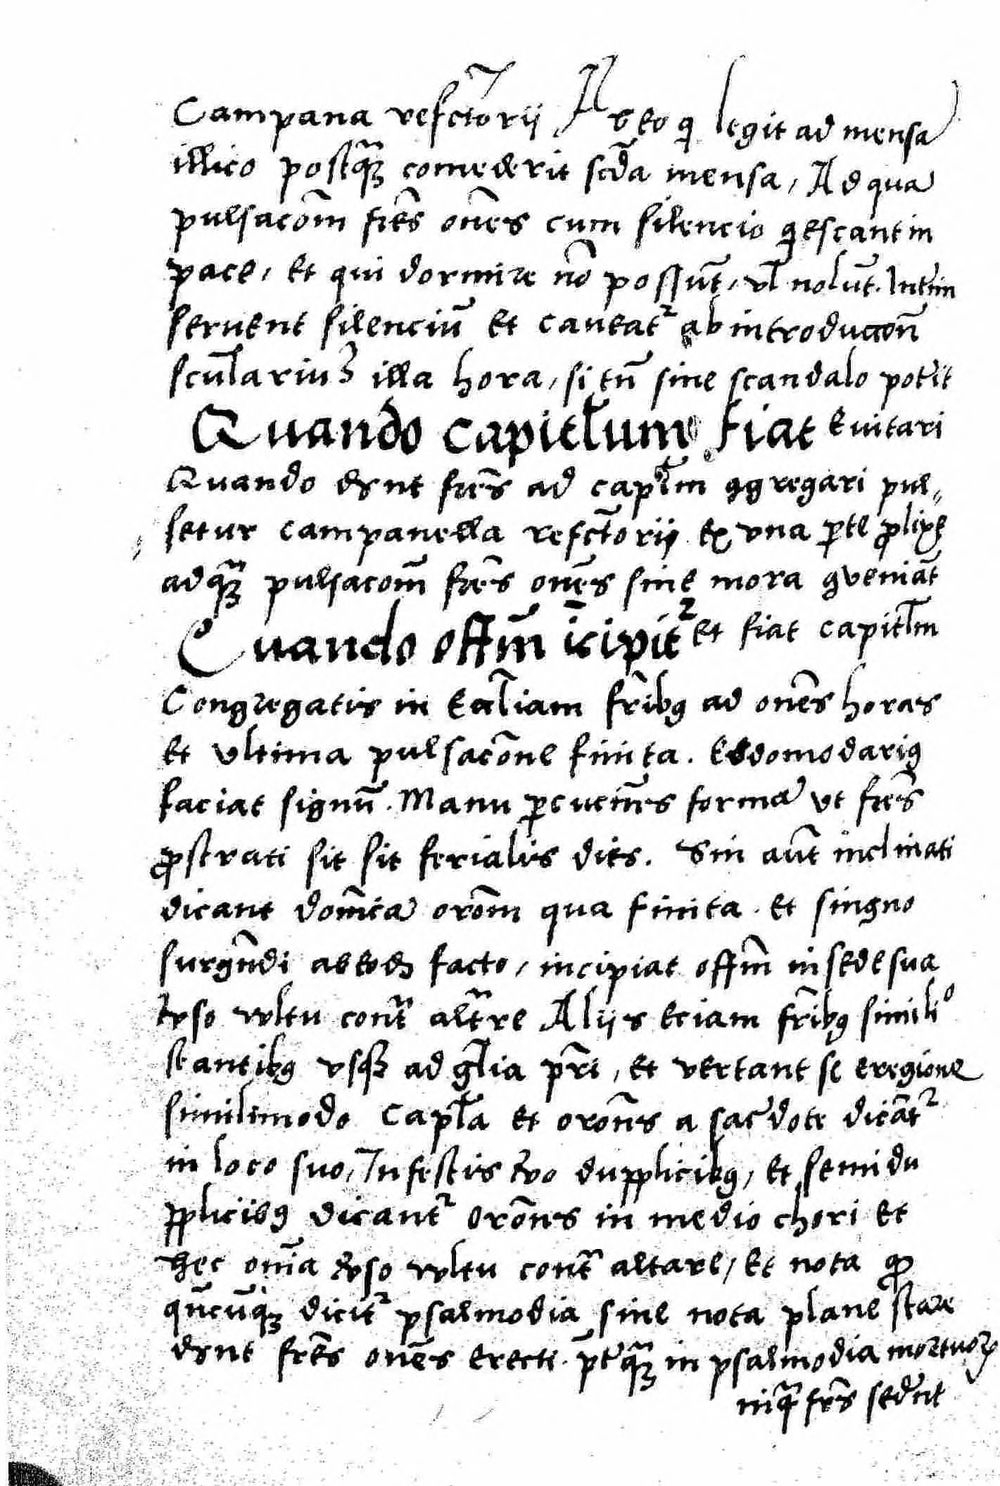 Campana refctorii Ab eo qi legit ad mensā
illico postq̄ȝ comederit scda mensa, Ad quā
pulsacōm frēs om̄es cum silencio qiescant in
pace, Et qui dormire nō possūt, vl nolūt. Intīm
seruent silenciū Et caueatr ab introduccōn
scularium illa hora, si tn̄ sine scandalo potit
Quando capitlum fiat Euitari
Quando debnt frēs ad captlm ɔgregari pul-
setur campanella refctorii Ex vna pte plixe
ad q̄ȝ pulsacōm frēs om̄es sine mora ɔueniāt
Quando offm̄ īcipitr Et fiat capitlm
Congregatis in Eccliam fribꝯ ad om̄es horas
Et vltima pulsacōne finita. Ebdomodariꝯ
faciat signū. Manu pcucins formā vt frēs
pstrati sit sit ferialis dies. Sin aūt inclinati
dicant domīcā orōm qua finita. Et singno
surgn̄di ab eodē facto, incipiat offm̄ in sede sua
vso vultu contra altre Aliis eciam fribꝯ simili o
stantibꝯ vsqȝ ad glia pri, Et vertant se eregione
similimodo Captla Et orōns a sacdote dicātr
in loco suo, In festis vo dupplicibꝯ, Et semidu
pplicibꝯ dicantr orōns in medio chori Et
hec om̄ia vso vultu contra altare, Et nota qp
qn̄cūqȝ dicitr psalmodia sine nota plane stare
debnt frēs om̄es erecti. ptqȝ in psalmodia mortuoꝝ
in qua frēs sedēnt